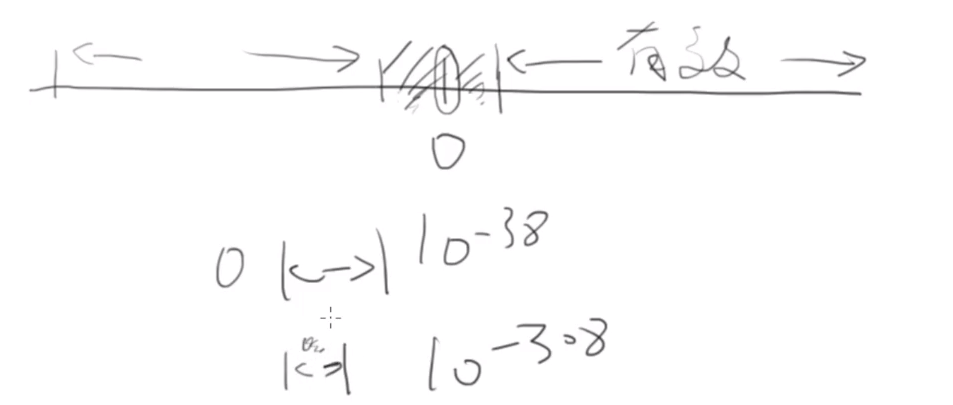 有效
0
0 |<->| 10^-38
|<->| 10^-308